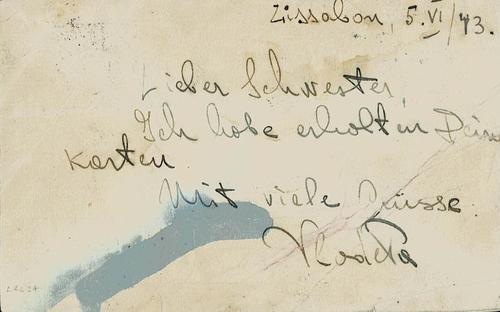 Lissabon, 5.VI/43.
Lieber Schwester,
Ich habe erholten Dein
karten
Mit viele Grüsse
Vlodeta